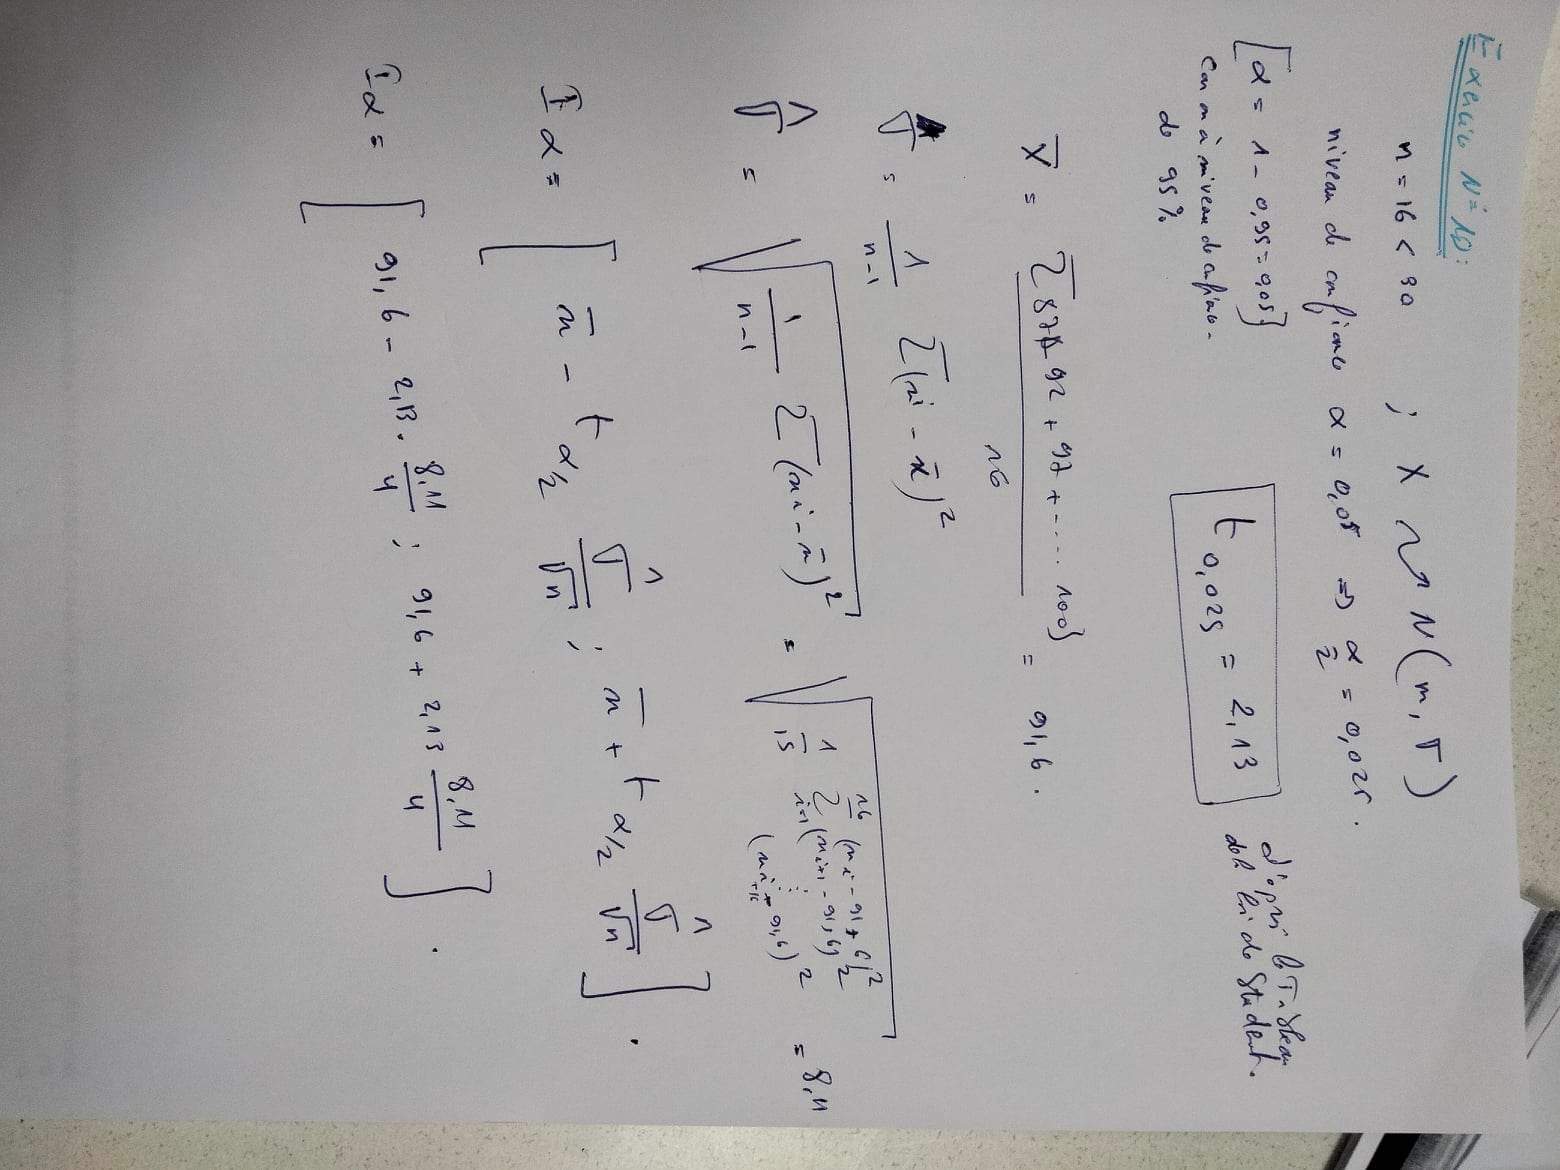 Exercice N° 10:
n = 16 < 30 ; X ⤳ N(m, σ)
niveau de confiance α = 0,05 ⇒ α/2 = 0,025.
[α = 1 - 0,95 = 0,05]
Car on à niveau de confiance.
de 95%
t 0,025 = 2,13
d'après le Tableau
de la loi de Student.
X̄ = Σ{87+92+97+.... 100} / 16 = 91,6.
σ = 1/(n-1) Σ(xi - x̄)²
σ̂ = √(1/(n-1) Σ(xi - x̄)²) = √(1/15 Σ i=1 16 (xi - 91,6)² (xi+1 - 91,6)² ⋮ (xi+16 - 91,6)²) = 8,11
Iα = [x̄ - t α/2 σ̂/√n ; x̄ + t α/2 σ̂/√n].
Iα = [91,6 - 2,13 . 8,11/4 ; 91,6 + 2,13 8,11/4].